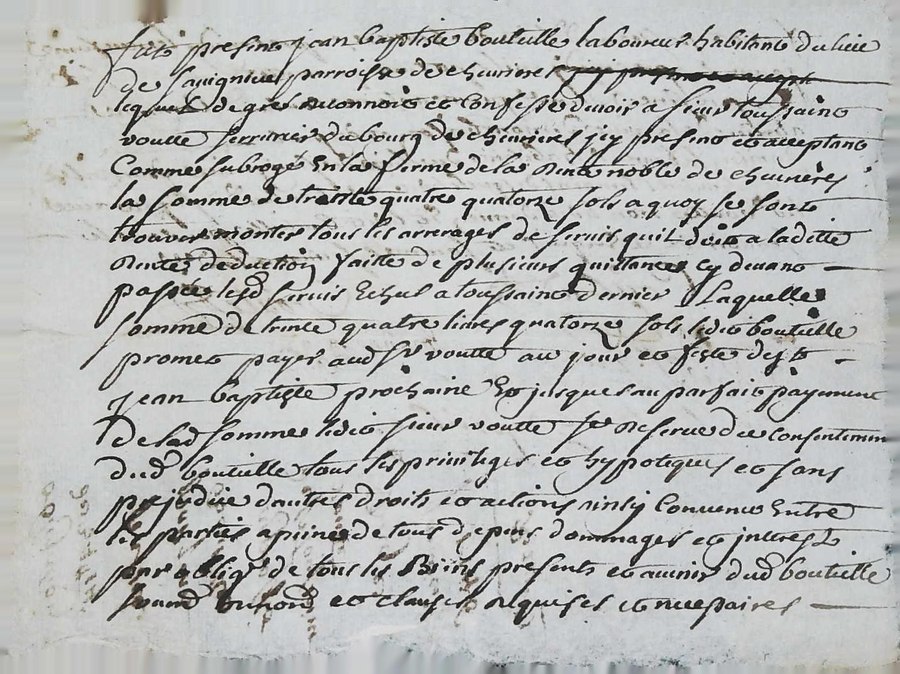 fut present jean baptiste bouteille laboureur habitant du lieu
de savignieu parroisse de chevrieres
lequel de gré reconnoit et confesse devoir a sieur toussaint
voutte serrurier du bourg de chevrieres icy present et acceptant
Comme subrogé En la ferme de la Rente noble de chevrières
la somme de trente quatre quatorze sols a quoy se sont
trouver monter tous les arrerages de servis quil doit a laditte
Rente deduction faitte de plusieurs quittances cy devant
passées lesd servis Echus a toussaint dernier Laquelle
somme de trente quatre livres quatorze sols ledit bouteille
promet payer aud sr voutte au jour et feste de st
jean baptiste prochaine Et jusques au parfait payement
de lad somme ledit sieur voutte se Reserve du consentement
dud bouteille tous les privileges et hypoteques et sans
prejudice dautres droits et actions ainsy Convenu Entre
les parties a peine de tous depens dommages et interest
par oblig de tous les Biens presents et avenir dud bouteille
et clauses requises et necessaires